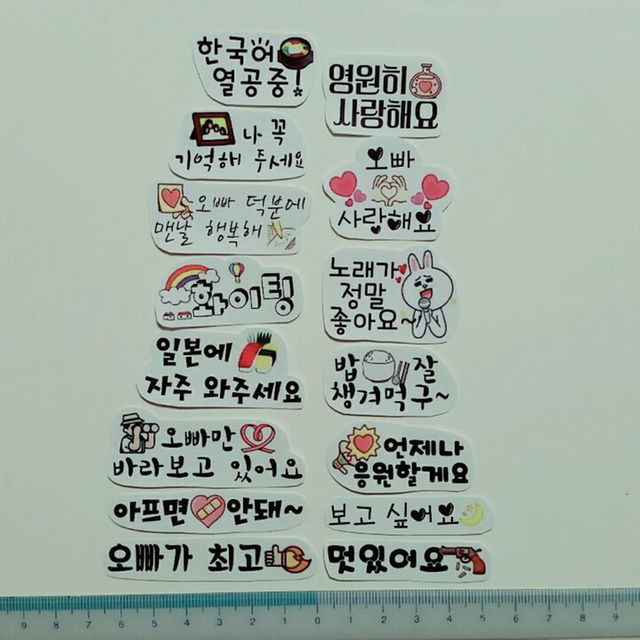 한국어
열공중!
나 꼭
기억해 주세요
오빠 덕분에
맨날 행복해
화이팅
일본에
자주 와주세요
오빠만
바라보고 있어요
아프면 안돼~
오빠가 최고
영원히
사랑해요
오빠
사랑해요
노래가
정말
좋아요~
밥 잘
챙겨먹구~
언제나
응원할게요
보고 싶어요
멋있어요
9 8 7 6 5 4 3 2 1 0 1 2 3 4 5 6 7 8 9